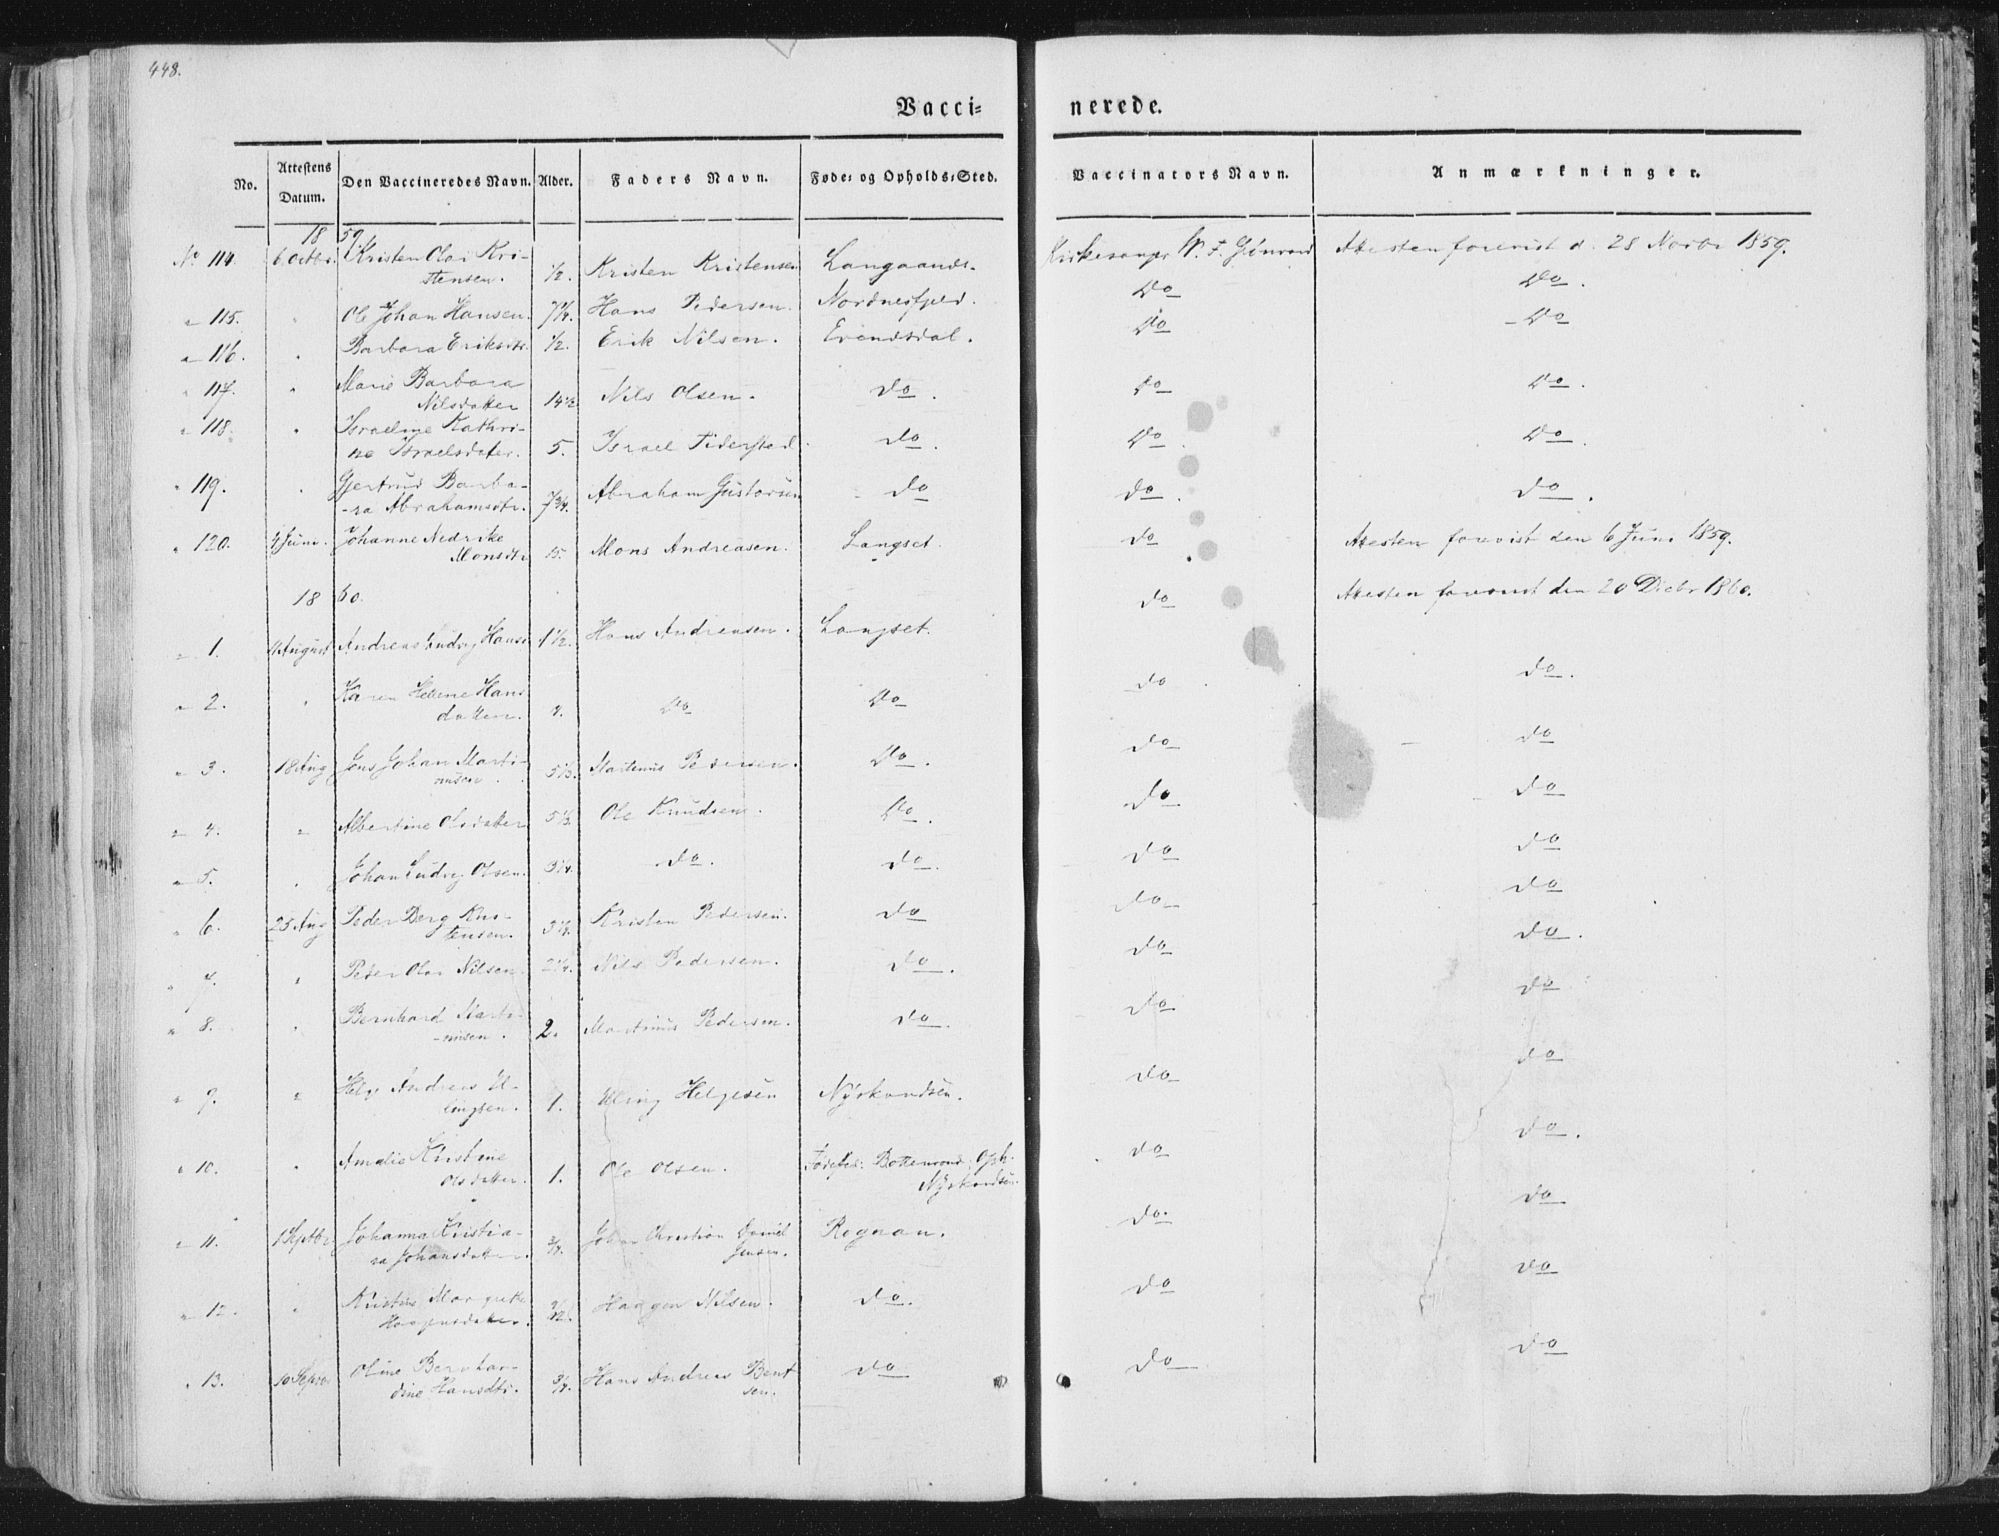 448.
Vacci=
nerede.
No.
Attestens Datum.
Den Vaccineredes Navn.
Alder.
Faders Navn.
Føde= og Opholds=Sted.
Vaccinators Navn.
Anmærkninger.
1859
No 114. 6 Octbr. Kristen Olai Kri- ½. Kristen Kristensen Langaands. Kirkesanger Attesten forevist d. 28 Novbr 1859.
stensen.
" 115. " Ole Johan Hansen. 7¼. Hans Pedersen. Nordnesfjeld. Do Do.
" 116. " Barbara Eriksdtr. ½. Erik Nilsen. Evendsdal. Do Do
" 117. " Marie Barbara
Nilsdatter 14½ Nils Olsen. Do. Do Do.
" 118. " Israeline Kathri-
ne Israelsdatter. 5. Israel do. Do. Do.
" 119. " Gjertrud Barba-
-ra Abrahamsdtr. 7¾. Abraham Gustavsen do do. do.
" 120. 4 Juni. Johanne Nedrike
Monsdtr 15. Mons Andreasen. Langset. do Attesten forevist den 6 Juni 1859.
1860. do Attesten forevist den 20 Decbr 1860.
" 1. 4 August Andreas Ludvig Hanse 1½. Hans Andreasen. Langset.
" 2. " Karen Helene Hans
datter. 4. Do Do do do.
" 3. 18 Aug Jens Johan Marti-
nusen. 5⅓. Martinus Pedersen. Do. do do
" 4. " Albertine Olsdatter 5⅓. Ole Knudsen. Do. do do
" 5. " Johan Ludvig Olsen. 3¼. do. do. do do
" 6. 25 Aug Peder Berg Kris-
tensen. 3¼. Kristen Pedersen. do do do
" 7. " Peder Olai Nilsen. 2¼. Nils Pedersen. do. do do.
" 8. " Bernhard Marti-
-nusen. 2. Martinus Pedersen. do. do do
" 9. " Helge Andreas El-
lingsen. 1. Elling Helgesen Nystrandsen. do do
" 10. " Amalie Kristine
Olsdatter. 1. Ole Olsen. Fødested: Bottenvand. Oph. do do.
Nystrandsen.
" 11. 1 Septbr Johanna Kristia-
na Johansdatter. ¾. Johan Christian Daniel Rognan. do. do
Jensen.
" 12. " Kristine Margrethe
Haagensdatter. Haagen Nilsen. do. do do
" 13. 10 Septbr Oline Bernhar-
dine Hansdtr. ¾. Hans Andreas Bent do do do
sen.